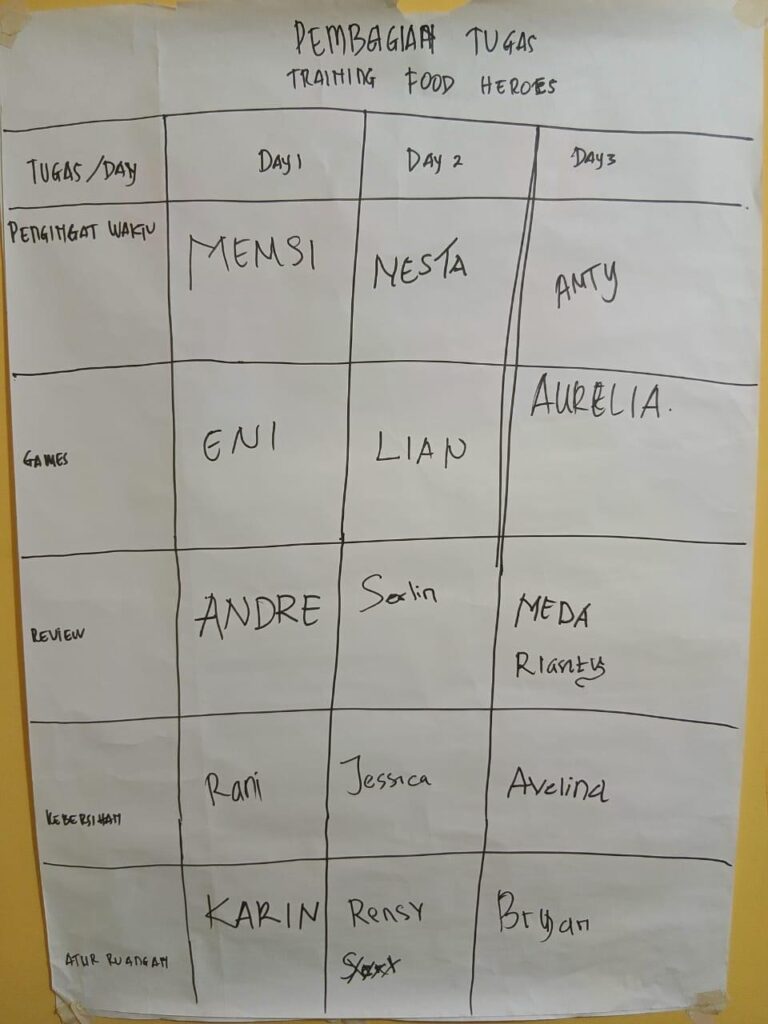 PEMBAGIAN TUGAS
TRAINING FOOD HEROES
TUGAS/DAY DAY 1 DAY 2 DAY 3
PENGINGAT WAKTU MEMSI NESTA ANTY
GAMES ENI LIAN AURELIA.
REVIEW ANDRE Serlin MEDA
Rianty
KEBERSIHAN Rani Jessica Avelina
ATUR RUANGAN KARIN Rensy Bryan